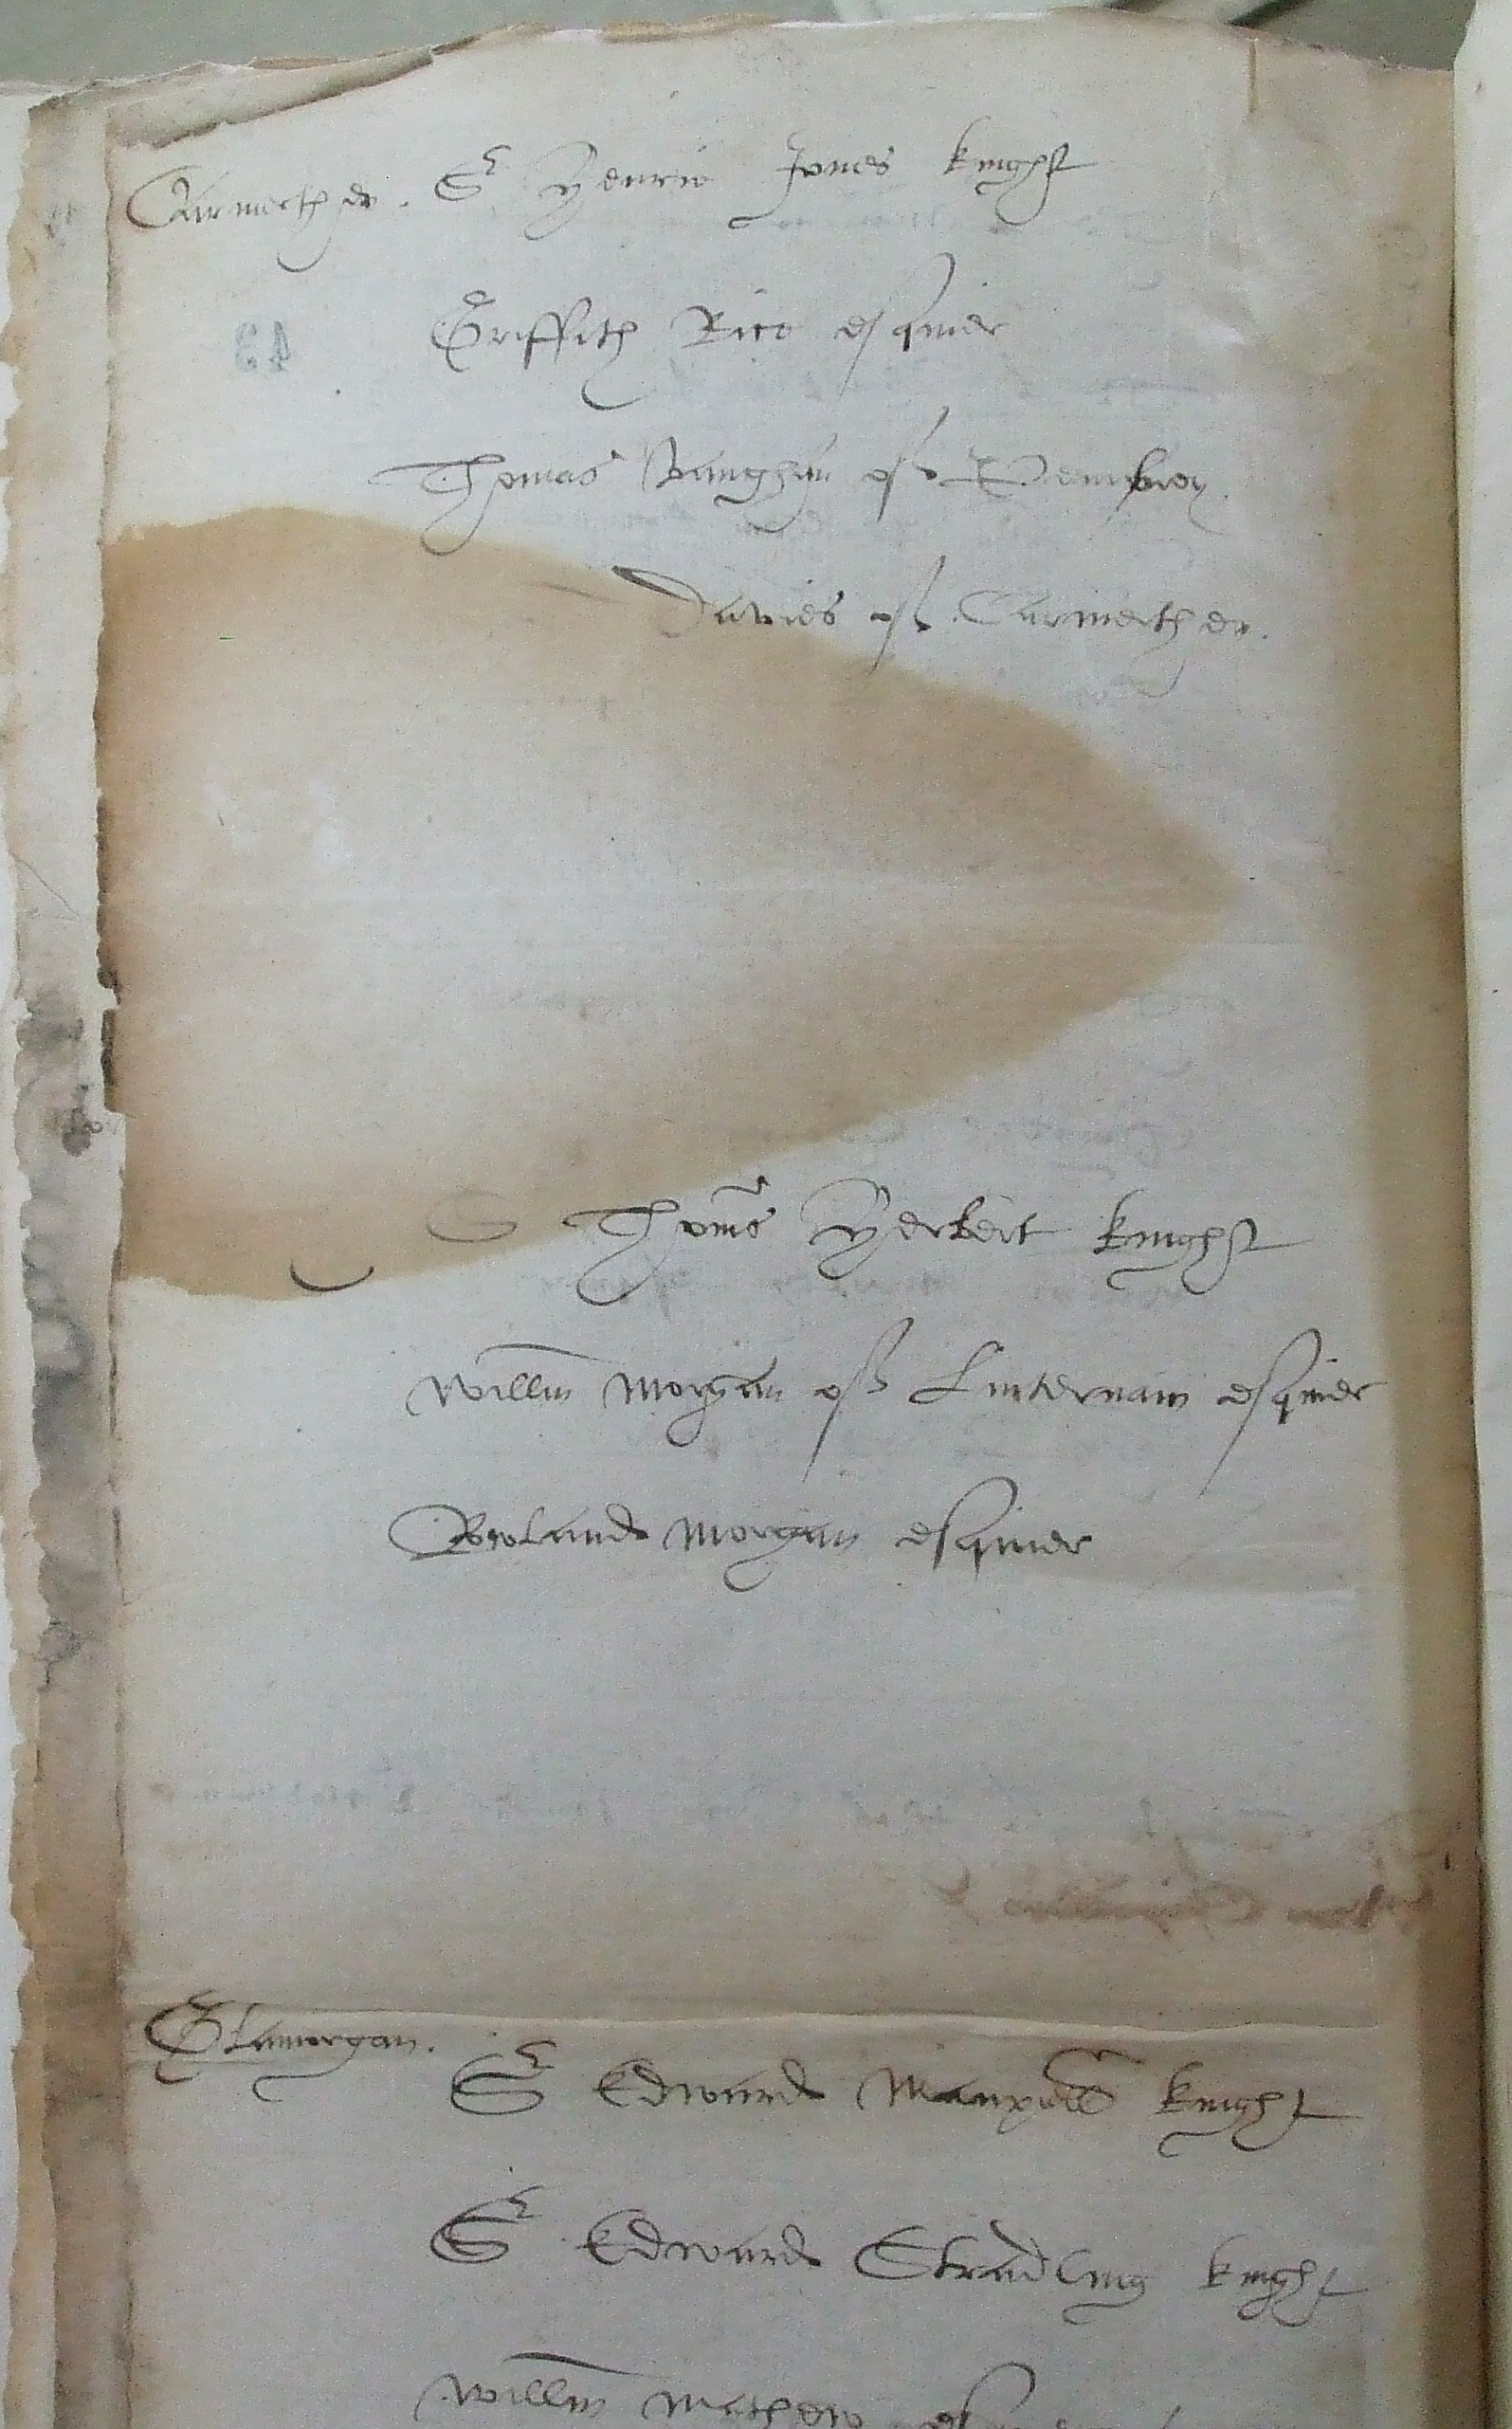 Carmerthen. Sr Henrie Jones knight
Griffith Rice esquier
Thomas Vaughan of Pembrey.
Davies of Carmerthen.
S Thomas Herbert knight
Willm Morgan of Lanternam esquier
Rowland Morgan esquier
Glamorgan.
Sr Edward Manxell knight
Sr Edward Stradling knight
Willm Mathew